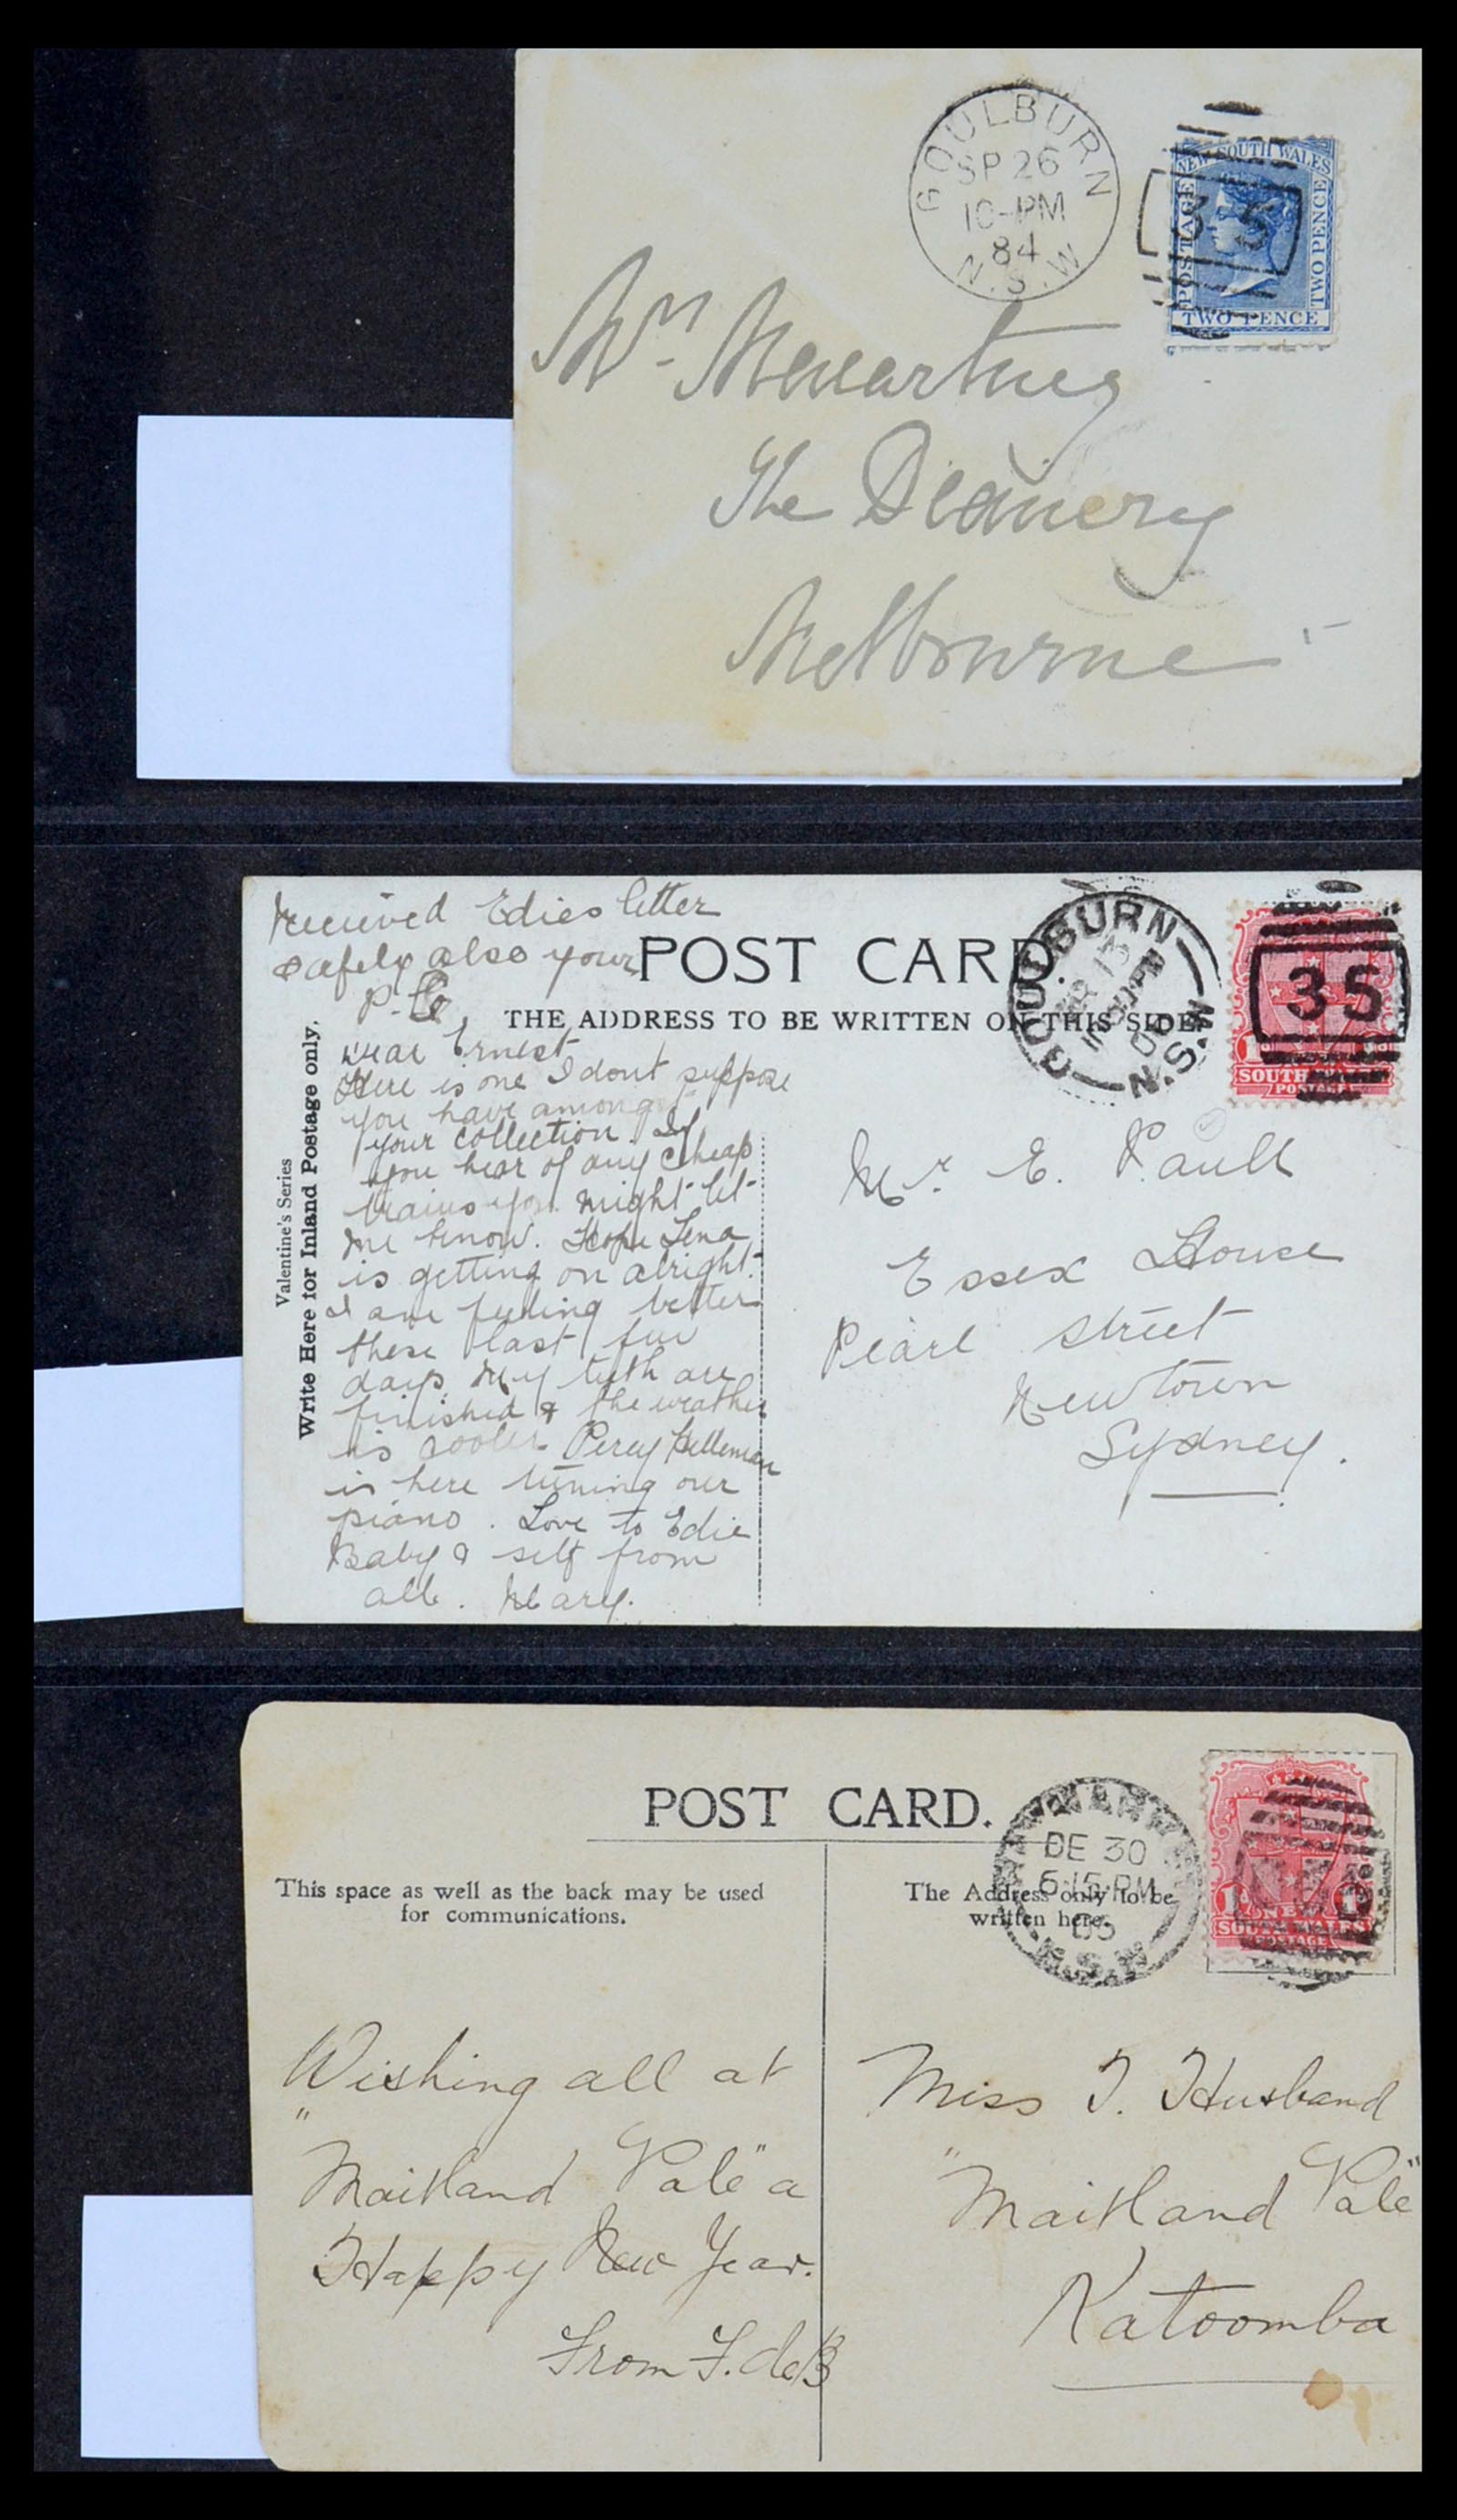 GOULBURN
SP 26
10-PM
84
N.S.W
NEW SOUTH WALES
POSTAGE
TWO PENCE
TWO PENCE
35
The Deanery
Melbourne
Received Edies letter
safely also your
P.C.
POST CARD.
THE ADDRESS TO BE WRITTEN ON THIS SIDE
GOULBURN
N.S.W
35
SOUTH
POSTAGE
Valentine's Series
Write Here for Inland Postage only.
Dear Ernest
Here is one I dont suppose
you have among
your collection. If
you hear of any cheap
trains you might let
me know. Hope Lena
is getting on alright.
I am feeling better
these last few
days. My teeth are
finished & the weather
is cooler. Percy
is here tuning our
piano. Love to Edie
Baby & self from
all. Mary.
Mr. E. Paull
Essex House
Pearl Street
Newtown
Sydney.
POST CARD.
This space as well as the back may be used
for communications.
The Address only to be
written here.
DE 30
6.15 PM
05
N.S.W
NEW
SOUTH WALES
POSTAGE
Wishing all at
"Maitland Vale" a
Happy New Year.
From F. de B
Miss I. Husband
"Maitland Vale"
Katoomba